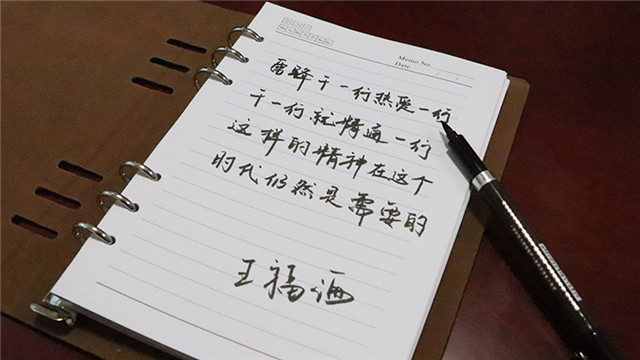 Memo No.
Date / /
雷锋干一行热爱一行
干一行就精通一行
这样的精神在这个
时代仍然是需要的
王福